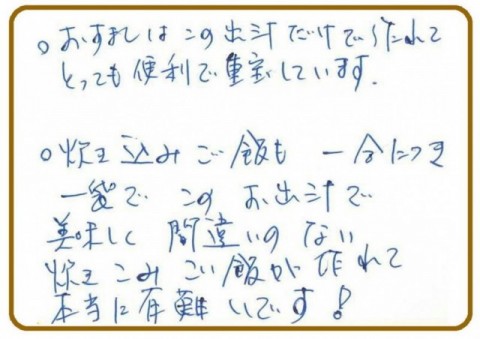 ○おすましはこの出汁だけで作れて
とっても便利で重宝しています.
○炊き込みご飯も 一合につき
一袋で このお出汁で
美味しく 間違いのない
炊きこみごい飯が 作れて
本当に有難いです!